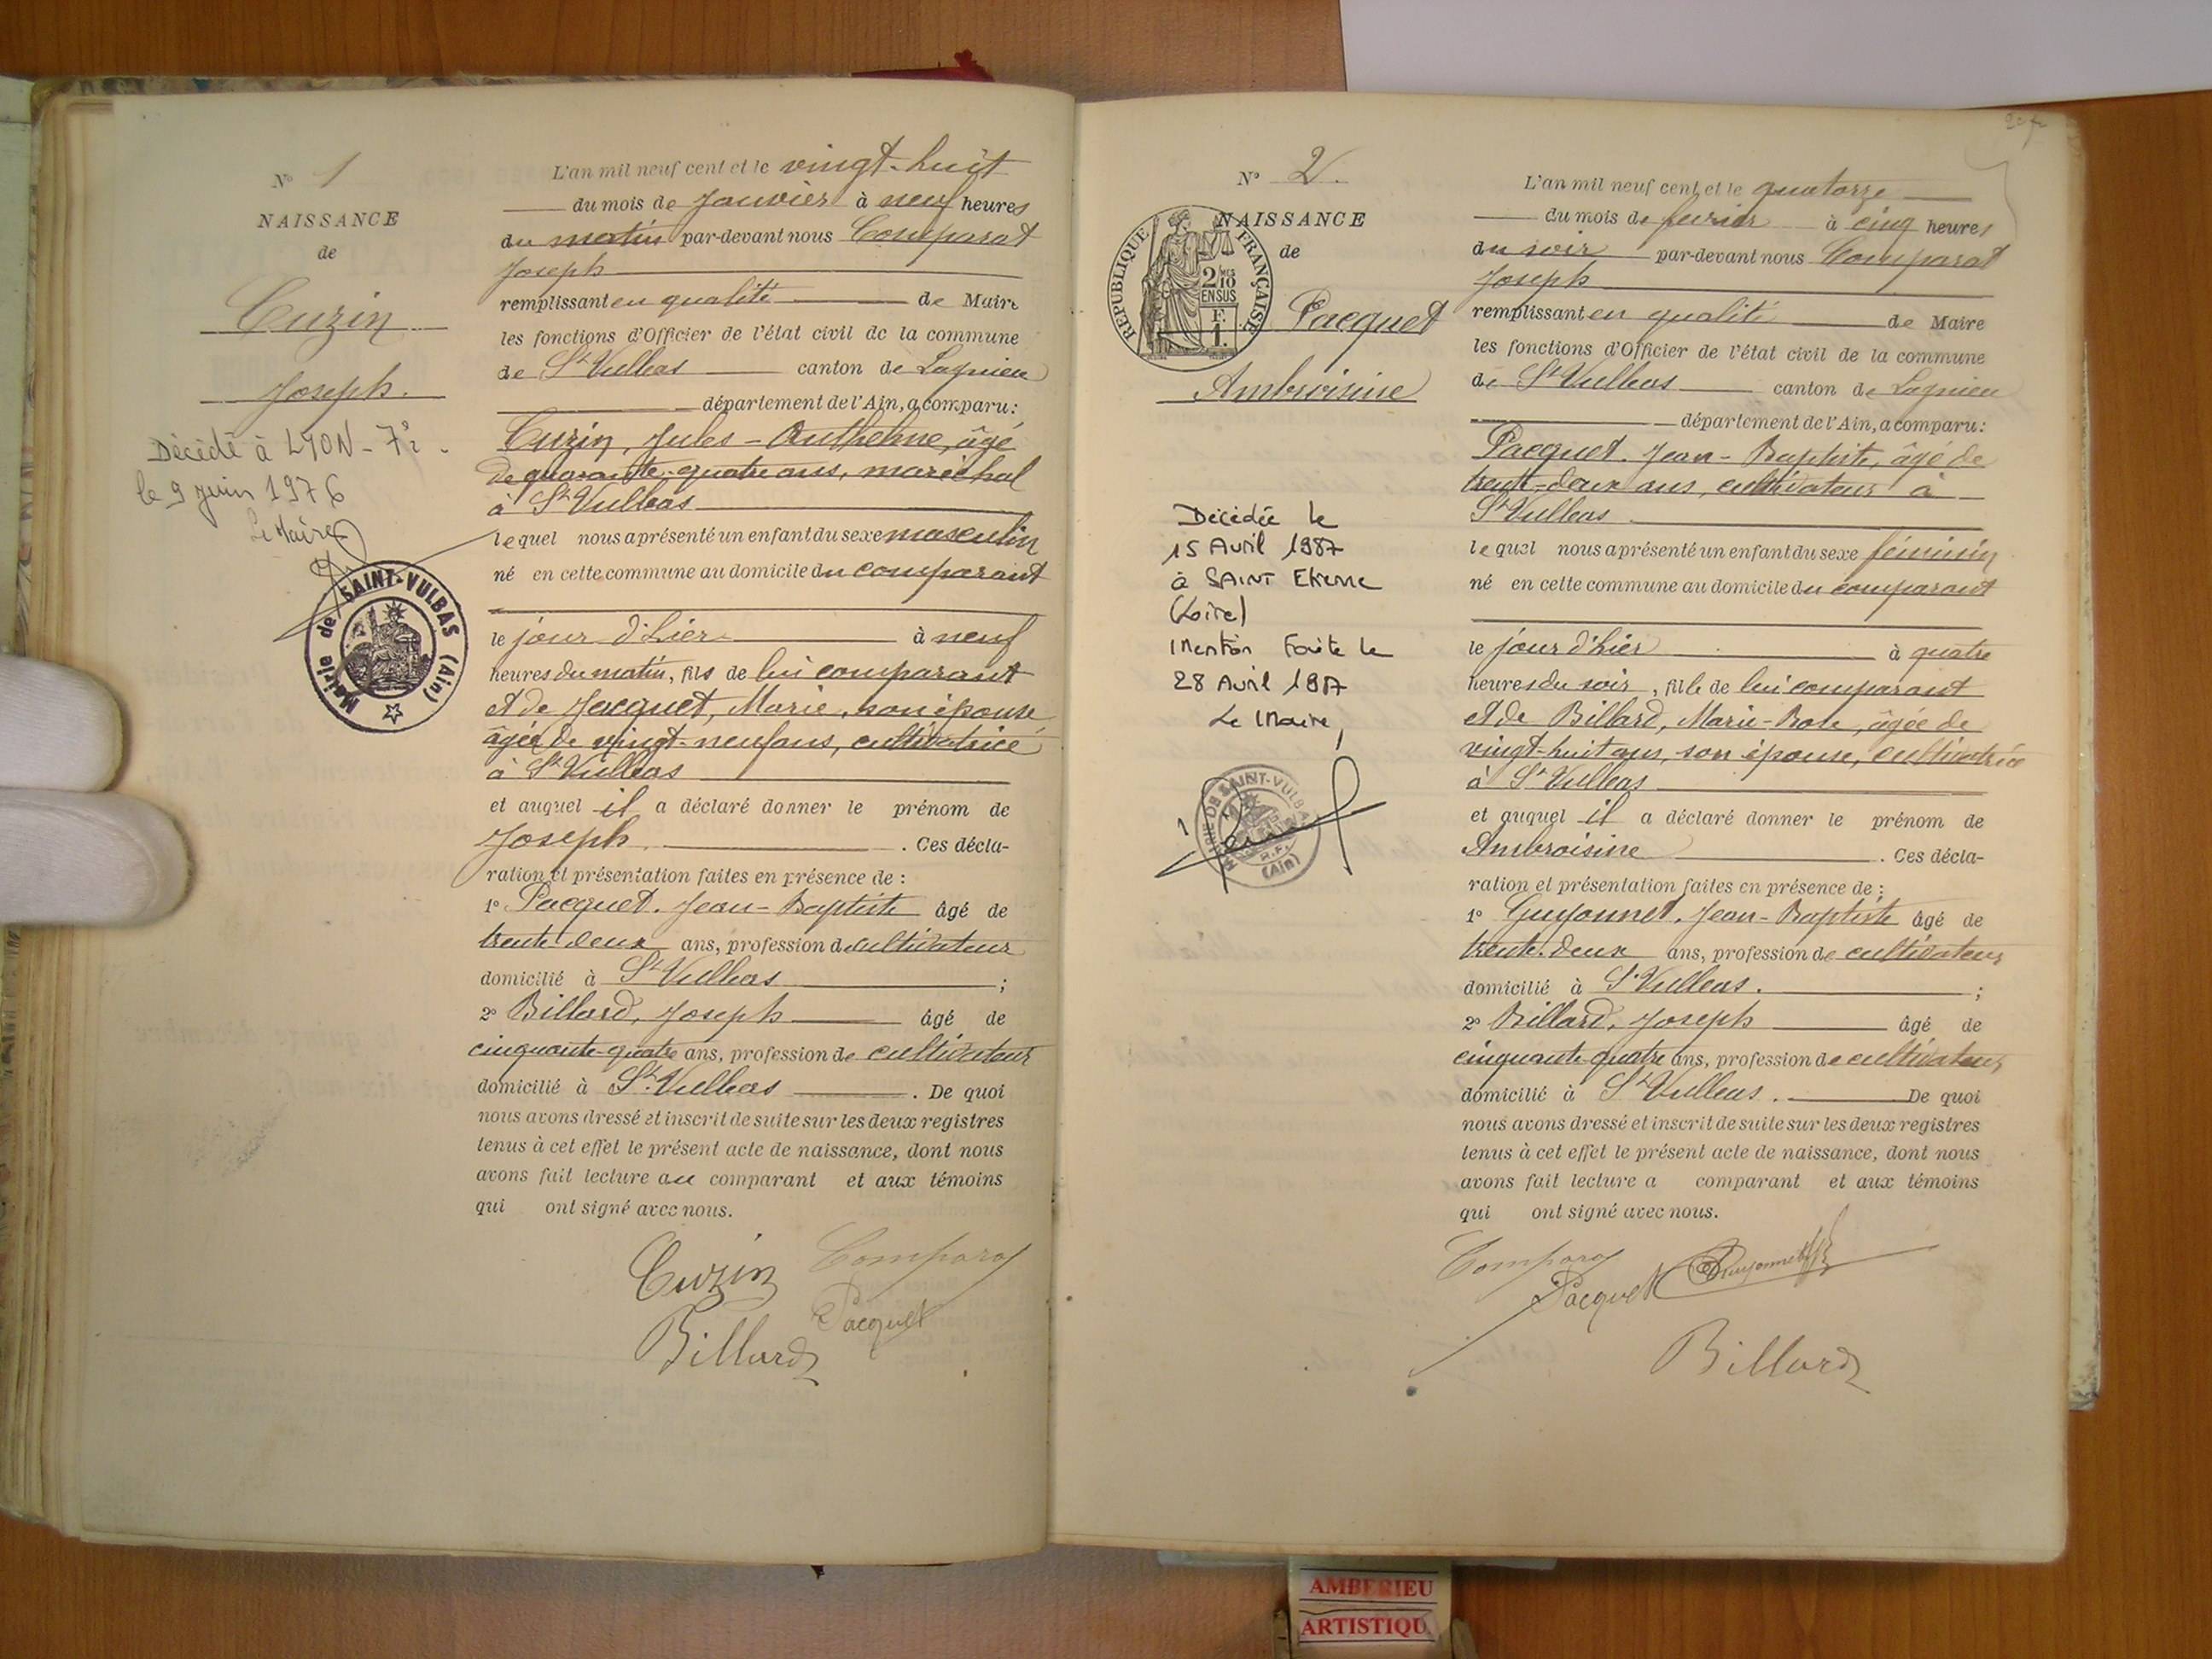 N° 1
NAISSANCE
de
Cuzin
Joseph.
Décédé à LYON - 7e.
le 9 juin 1976
Le Maire
Mairie de SAINT-VULBAS (Ain)
L'an mil neuf cent et le vingt-huit
du mois de Janvier à neuf heures
du matin par-devant nous Comparat
Joseph
remplissant en qualité de Maire
les fonctions d'Officier de l'état civil de la commune
de St Vulbas canton de Lagnieu
département de l'Ain, a comparu:
Cuzin, Jules - Anthelme, âgé
de quarante-quatre ans, maréchal
à St Vulbas
lequel nous a présenté un enfant du sexe masculin
né en cette commune au domicile du comparant
le jour d'hier à neuf
heures du matin, fils de lui comparant
et de Jacquet, Marie, son épouse
âgée de vingt-neuf ans, cultivatrice
à St Vulbas
et auquel il a déclaré donner le prénom de
Joseph. . Ces décla-
ration et présentation faites en présence de :
1° Pacquet. Jean-Baptiste âgé de
trente-deux ans, profession de cultivateur
domicilié à St Vulbas ;
2° Billard, Joseph âgé de
cinquante-quatre ans, profession de cultivateur
domicilié à St Vulbas . De quoi
nous avons dressé et inscrit de suite sur les deux registres
tenus à cet effet le présent acte de naissance, dont nous
avons fait lecture au comparant et aux témoins
qui ont signé avec nous.
Cuzin Comparat
Pacquet
Billard
N° 2.
NAISSANCE
de
RÉPUBLIQUE FRANÇAISE
2/10 EN SUS
1 F.
Pacquet
Ambroisine
Décédée le
15 Avril 1987
à SAINT Etienne
(Loire)
Mention Faite le
28 Avril 1987
Le Maire,
MAIRIE DE SAINT-VULBAS
R.F.
(Ain)
L'an mil neuf cent et le quatorze
du mois de février à cinq heures
du soir par-devant nous Comparat
Joseph
remplissant en qualité de Maire
les fonctions d'Officier de l'état civil de la commune
de St Vulbas canton de Lagnieu
département de l'Ain, a comparu:
Pacquet. Jean-Baptiste, âgé de
trente-deux ans, cultivateur à
St Vulbas
lequel nous a présenté un enfant du sexe féminin
né en cette commune au domicile du comparant
le jour d'hier à quatre
heures du soir, fille de lui comparant
et de Billard, Marie-Rose, âgée de
vingt-huit ans, son épouse, cultivatrice
à St Vulbas
et auquel il a déclaré donner le prénom de
Ambroisine . Ces décla-
ration et présentation faites en présence de :
1° Guyonnet. Jean-Baptiste âgé de
trente-deux ans, profession de cultivateur
domicilié à St Vulbas. ;
2° Billard, Joseph âgé de
cinquante-quatre ans, profession de cultivateur
domicilié à St Vulbas. De quoi
nous avons dressé et inscrit de suite sur les deux registres
tenus à cet effet le présent acte de naissance, dont nous
avons fait lecture a comparant et aux témoins
qui ont signé avec nous.
Comparat
Pacquet Guyonnet
Billard
AMBERIEU
ARTISTIQU